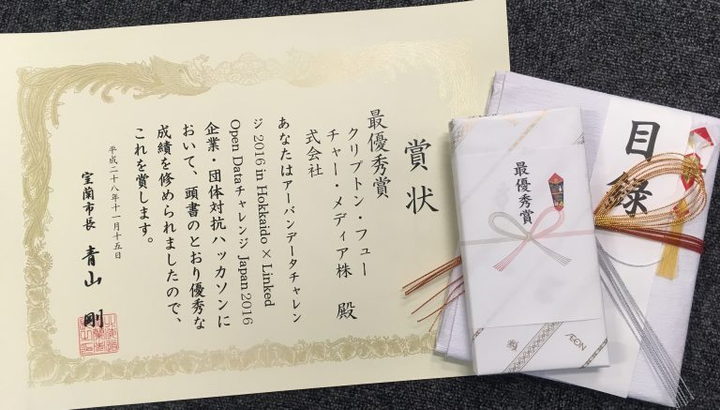 賞状
最優秀賞
クリプトン・フュー
チャー・メディア株
式会社
殿
あなたはアーバンデータチャレン
ジ 2016 in Hokkaido × Linked
Open Dataチャレンジ Japan 2016
企業・団体対抗ハッカソンに
おいて、頭書のとおり優秀な
成績を修められましたので、
これを賞します。
平成二十八年十一月十五日
室蘭市長 青山 剛
最優秀賞
ÆON
目録